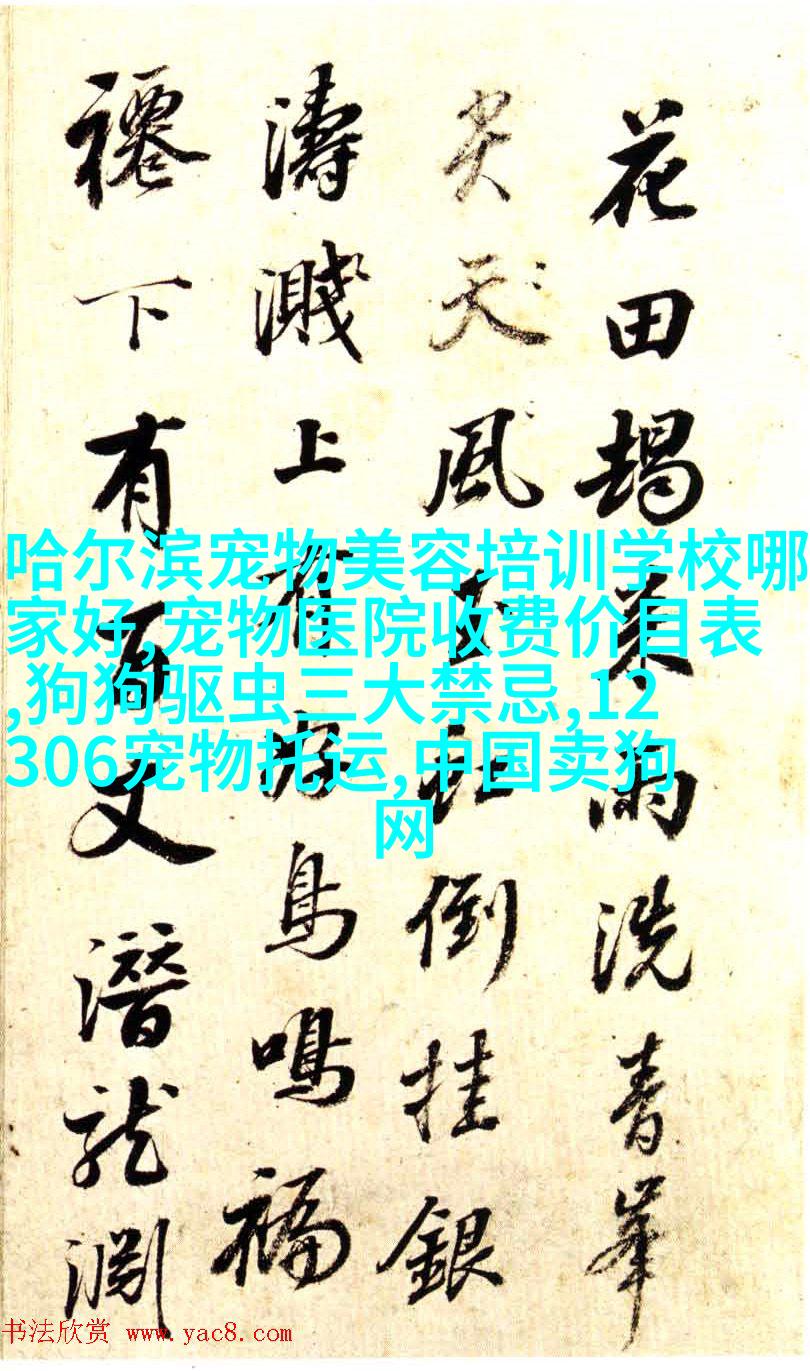 花田朅来雨洗青峯
尖天風玉虹倒挂銀
濤濺上有好鳥鳴福
下有百丈潛龍淵
哈尔滨宠物美容培训学校哪
家好,宠物医院收费价目表
,狗狗驱虫三大禁忌,12
306宠物托运,中国卖狗
网
书法欣赏 www.yac8.com